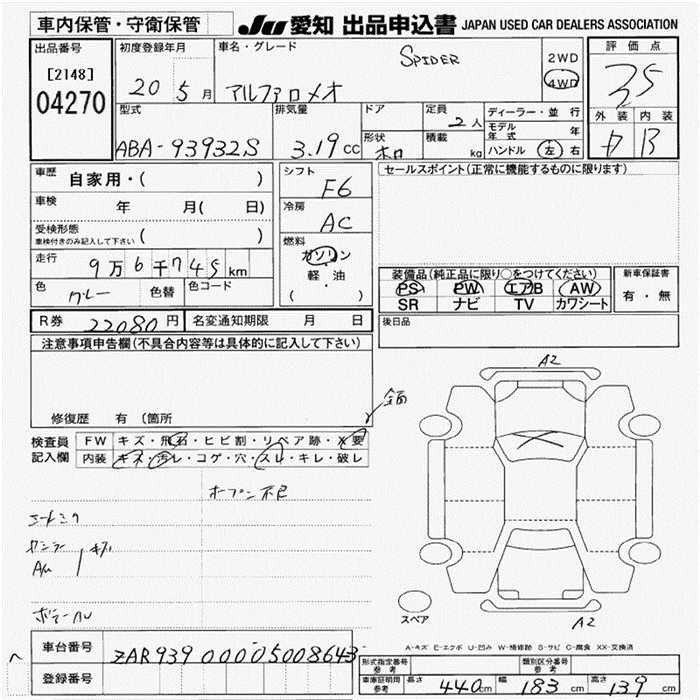 車内保管・守衛保管
JU 愛知 出品申込書 JAPAN USED CAR DEALERS ASSOCIATION
出品番号
[2148]
04270
初度登録年月
20 5月
車名・グレード
SPIDER
アルファロメオ
2WD
4WD
評価点
3.5
外装 内装
B
型式
ABA-93932S
排気量
3.19cc
ドア
形状
ホロ
定員
2人
積載
kg
ディーラー・並行
モデル年式 年
ハンドル 左 右
車歴
自家用・( )
車検
年 月( 日)
受検形態
車検付きのみ記入して下さい ( )
走行
9万6千745km
色 グレー 色替 色コード
シフト
F6
冷房
AC
燃料
ガソリン
軽・油
( )
セールスポイント(正常に機能するものに限ります)
装備品(純正品に限り○をつけてください)
PS PW エアB AW
SR ナビ TV カワシート
新車保証書
有・無
R券 22080円 名変通知期限 月 日
後日品
注意事項申告欄(不具合内容等は具体的に記入して下さい)
修復歴 有 (箇所
全面
検査員記入欄
FW キズ・飛石・ヒビ割・リペア跡・X要
内装 キズ・汚レ・コゲ・穴・スレ・キレ・破レ
オープン不良
コートミク
センター
AW
キズ
ボデーAU
A2
スペア
A2
A-キズ E-エクボ U-凹み W-補修跡 S-サビ C-腐食 XX-交換済
車台番号 ZAR93900005008643
登録番号
形式指定番号 参考
類別区分番号 参考
車庫証明用 参考
長さ 440cm
幅 183cm
高さ 139cm